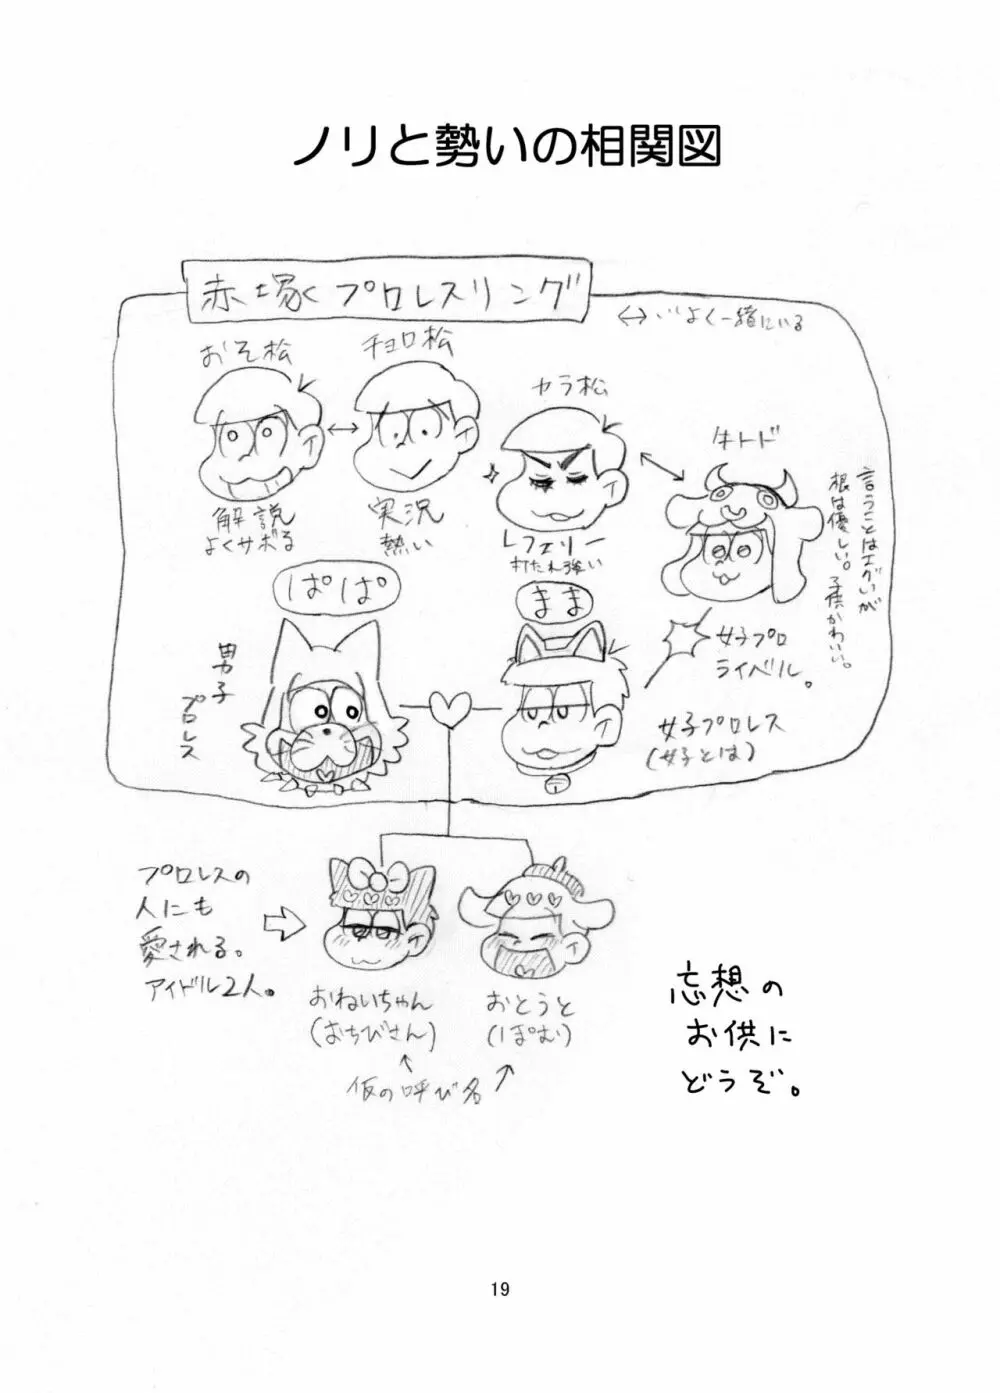 ノリと勢いの相関図
赤塚プロレスリング
↔いよく一緒にいる
おそ松
チョロ松
カラ松
牛トド
解説
よくサボる
実況
熱い
レフェリー
打たれ強い
言うことはエグいが
根は優しい。子供かわいい。
ぱぱ
まま
男子
プロレス
女子プロ
ライバル。
女子プロレス
(女子とは)
プロレスの
人にも
愛される。
アイドル2人。
おねいちゃん
(おちびさん)
おとうと
(ぽむ)
仮の呼び名
妄想の
お供に
どうぞ。
19